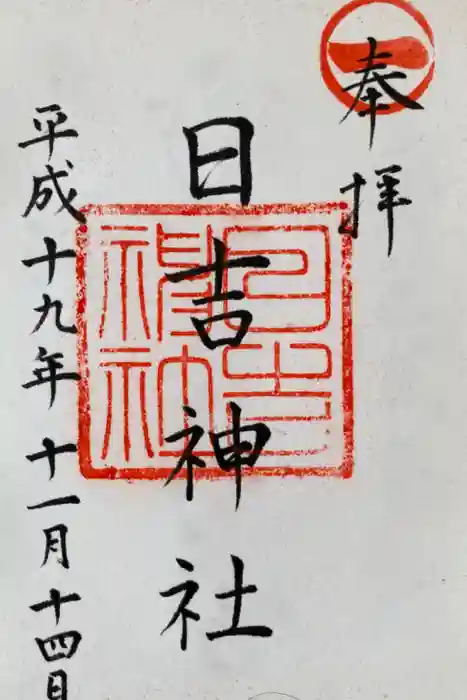 奉拝
日吉神社
日吉神社
平成十九年十一月十四日